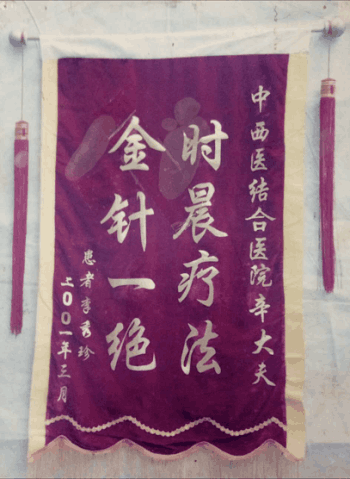 中西医结合医院辛大夫
时晨疗法
金针一绝
患者李秀珍
二00一年三月